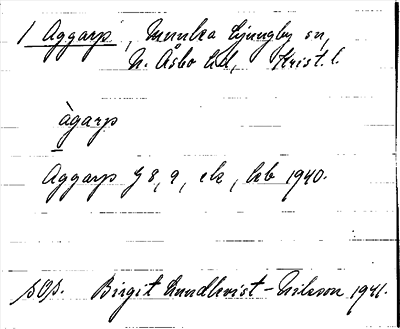 1 Aggarp, Munka Ljungby sn,
N. Åsbo hd, Krist. l.
àgarp
Aggarp J 8, 9, ek, kb 1940.
SOS. Birgit Lundkvist-Nilsson 1941.